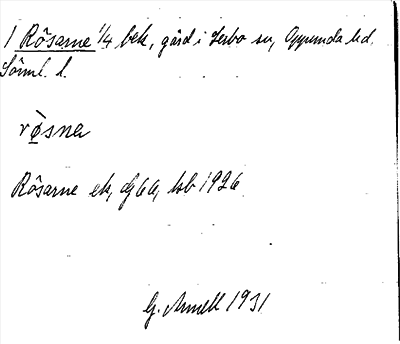 1 Rösarne 1/4 bek, gård i Lerbo sn, Oppunda hd.
Sörml. l.
rø̀sner
Rösarne ek, dg 6a, hsb 1926.
G. Annell 1931